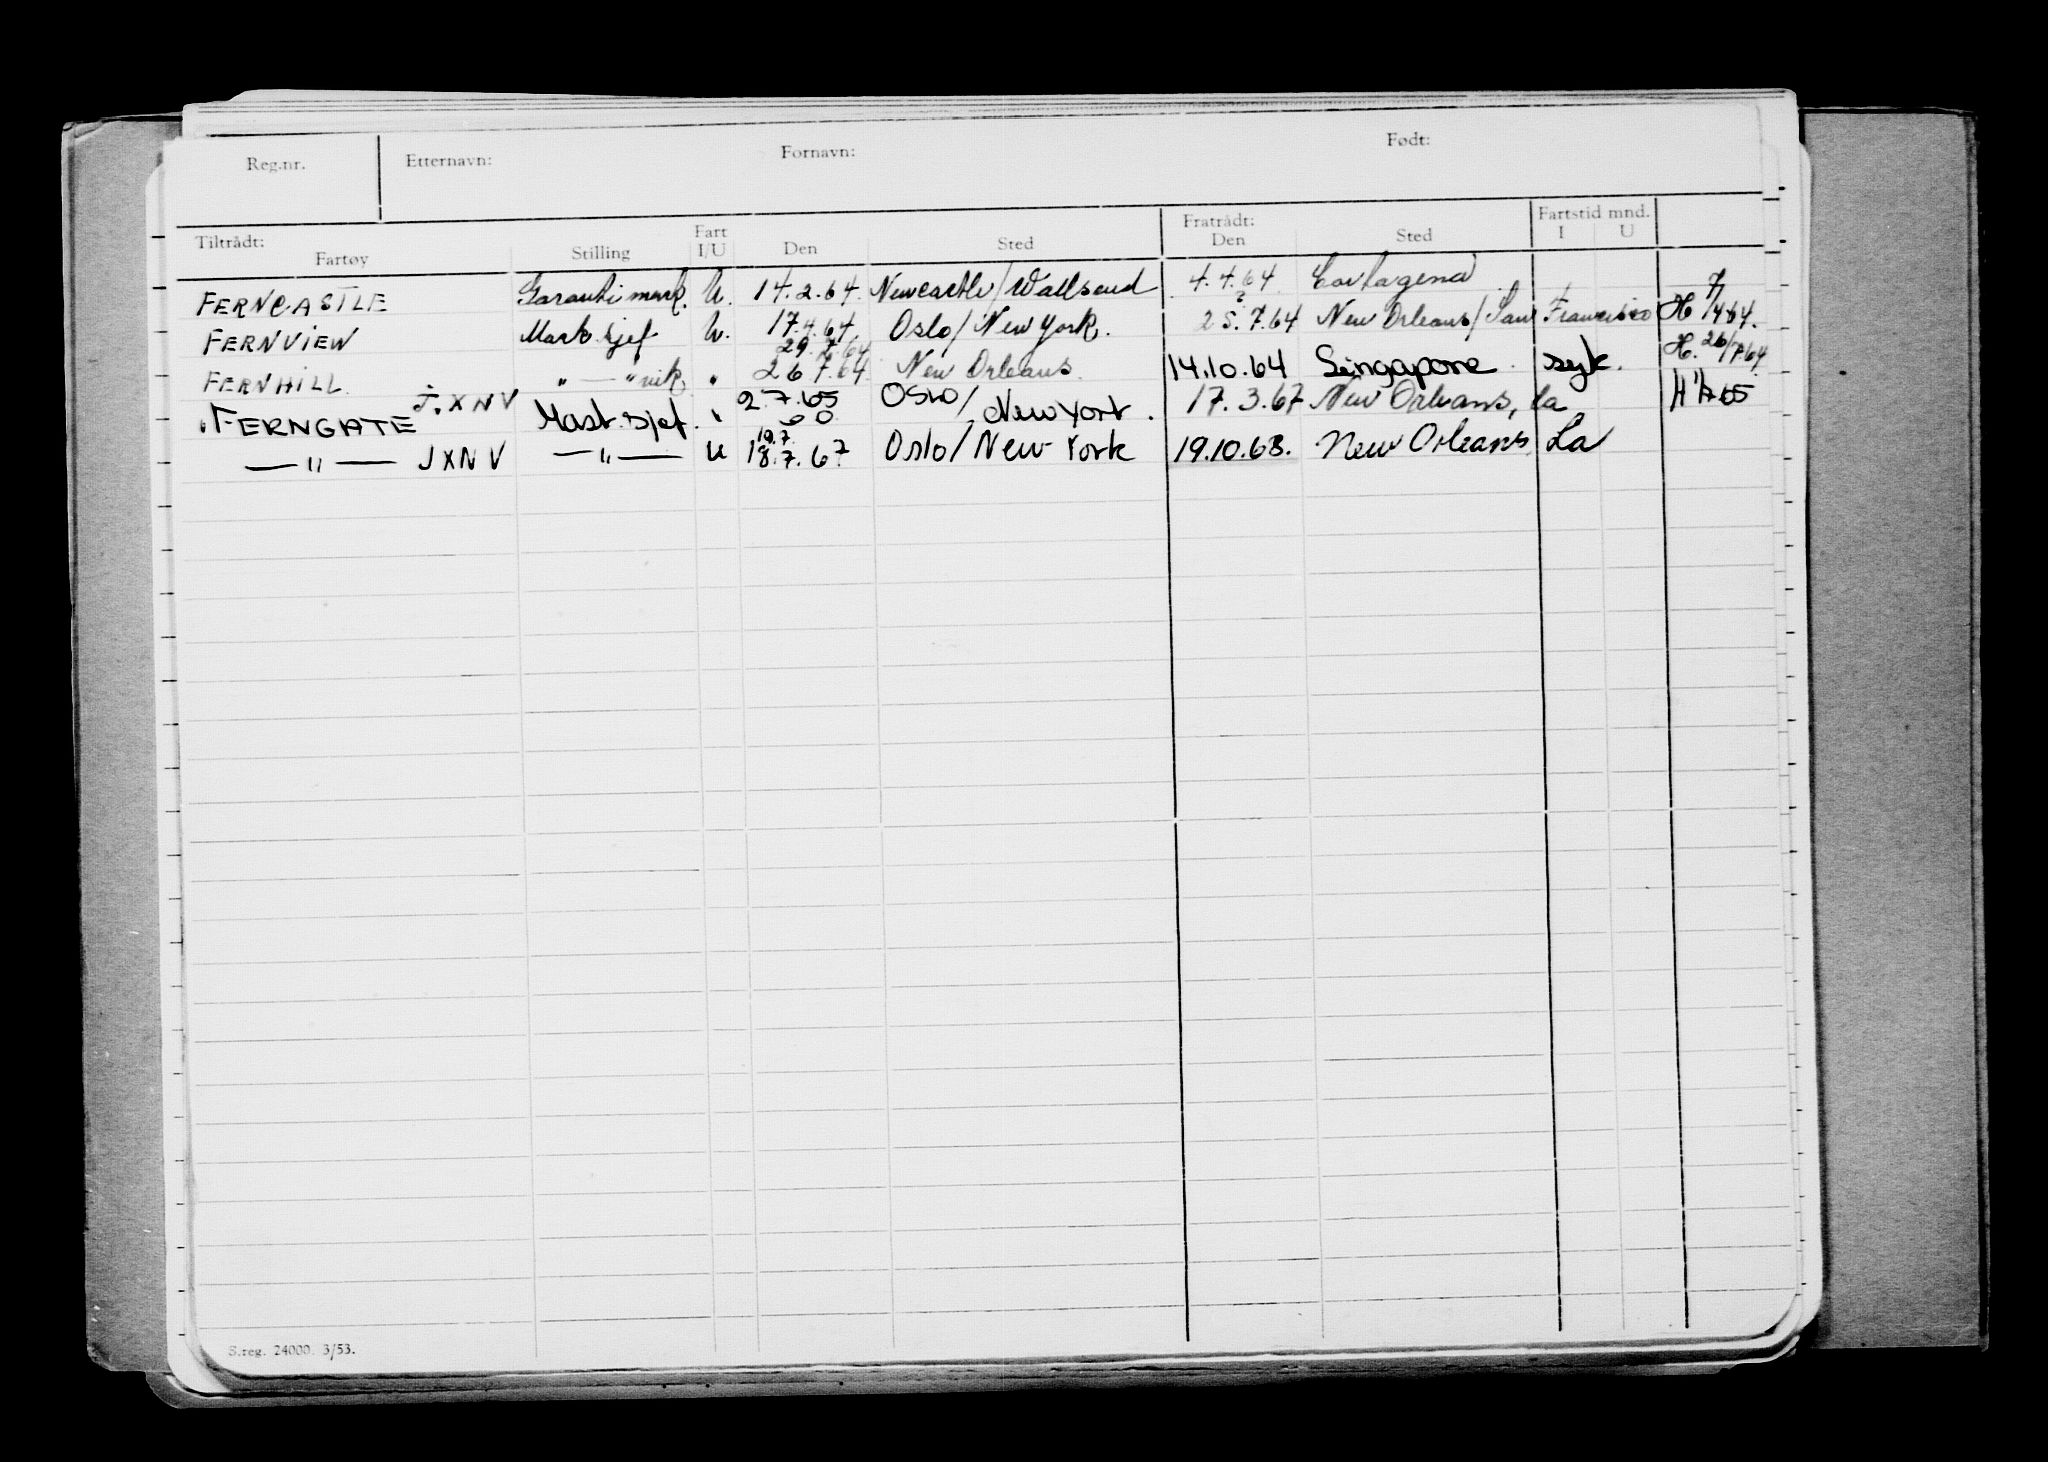 Reg.nr. Etternavn: Fornavn: Født:
Tiltrådt: Fratrådt: Fartstid mnd.
Fartøy Stilling Fart I/U Den Sted Den Sted I U
FERNCASTLE Garanti mask. U. 14.2.64. Newcastle/Wallsend 4.4.64 Cartagena
FERNVIEW Mask. sjef U. 17.4.64 Oslo/New York. 25.7.64 New Orleans/San Francisco H 7/4 64.
29.7.64
FERNHILL " — " vik. " 26.7.64 New Orleans 14.10.64 Singapore syk. H. 26/7 64.
FERNGATE J.X N V Mask. sjef. " 2.7.65 Oslo/New York. 17.3.67 New Orleans, La
— " — J X N V — " — U 18.7.67 Oslo/New York 19.10.68. New Orleans, La
19.7.
S.reg. 24000. 3/53.